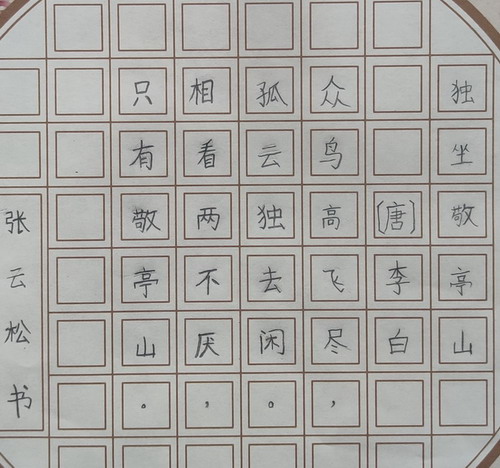 独坐敬亭山
〔唐〕李白
众鸟高飞尽，
孤云独去闲。
相看两不厌，
只有敬亭山。
张云松书